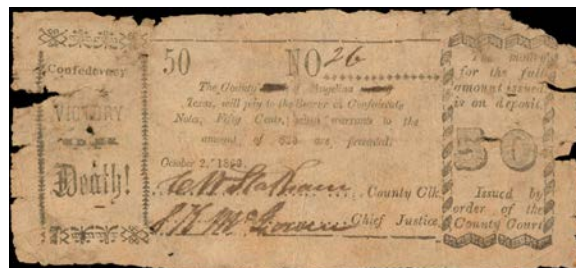 Confederacy
VICTORY
Death!
50 NO 26
The County of Angelina
Texas, will pay to the Bearer in Confederate
Notes, Fifty Cents, when warrants to the
amount of are presented.
October 2, 
County Clk.
Chief Justice
The money
for the full
amount issued
is on deposit.
50
Issued by
order of the
County Court